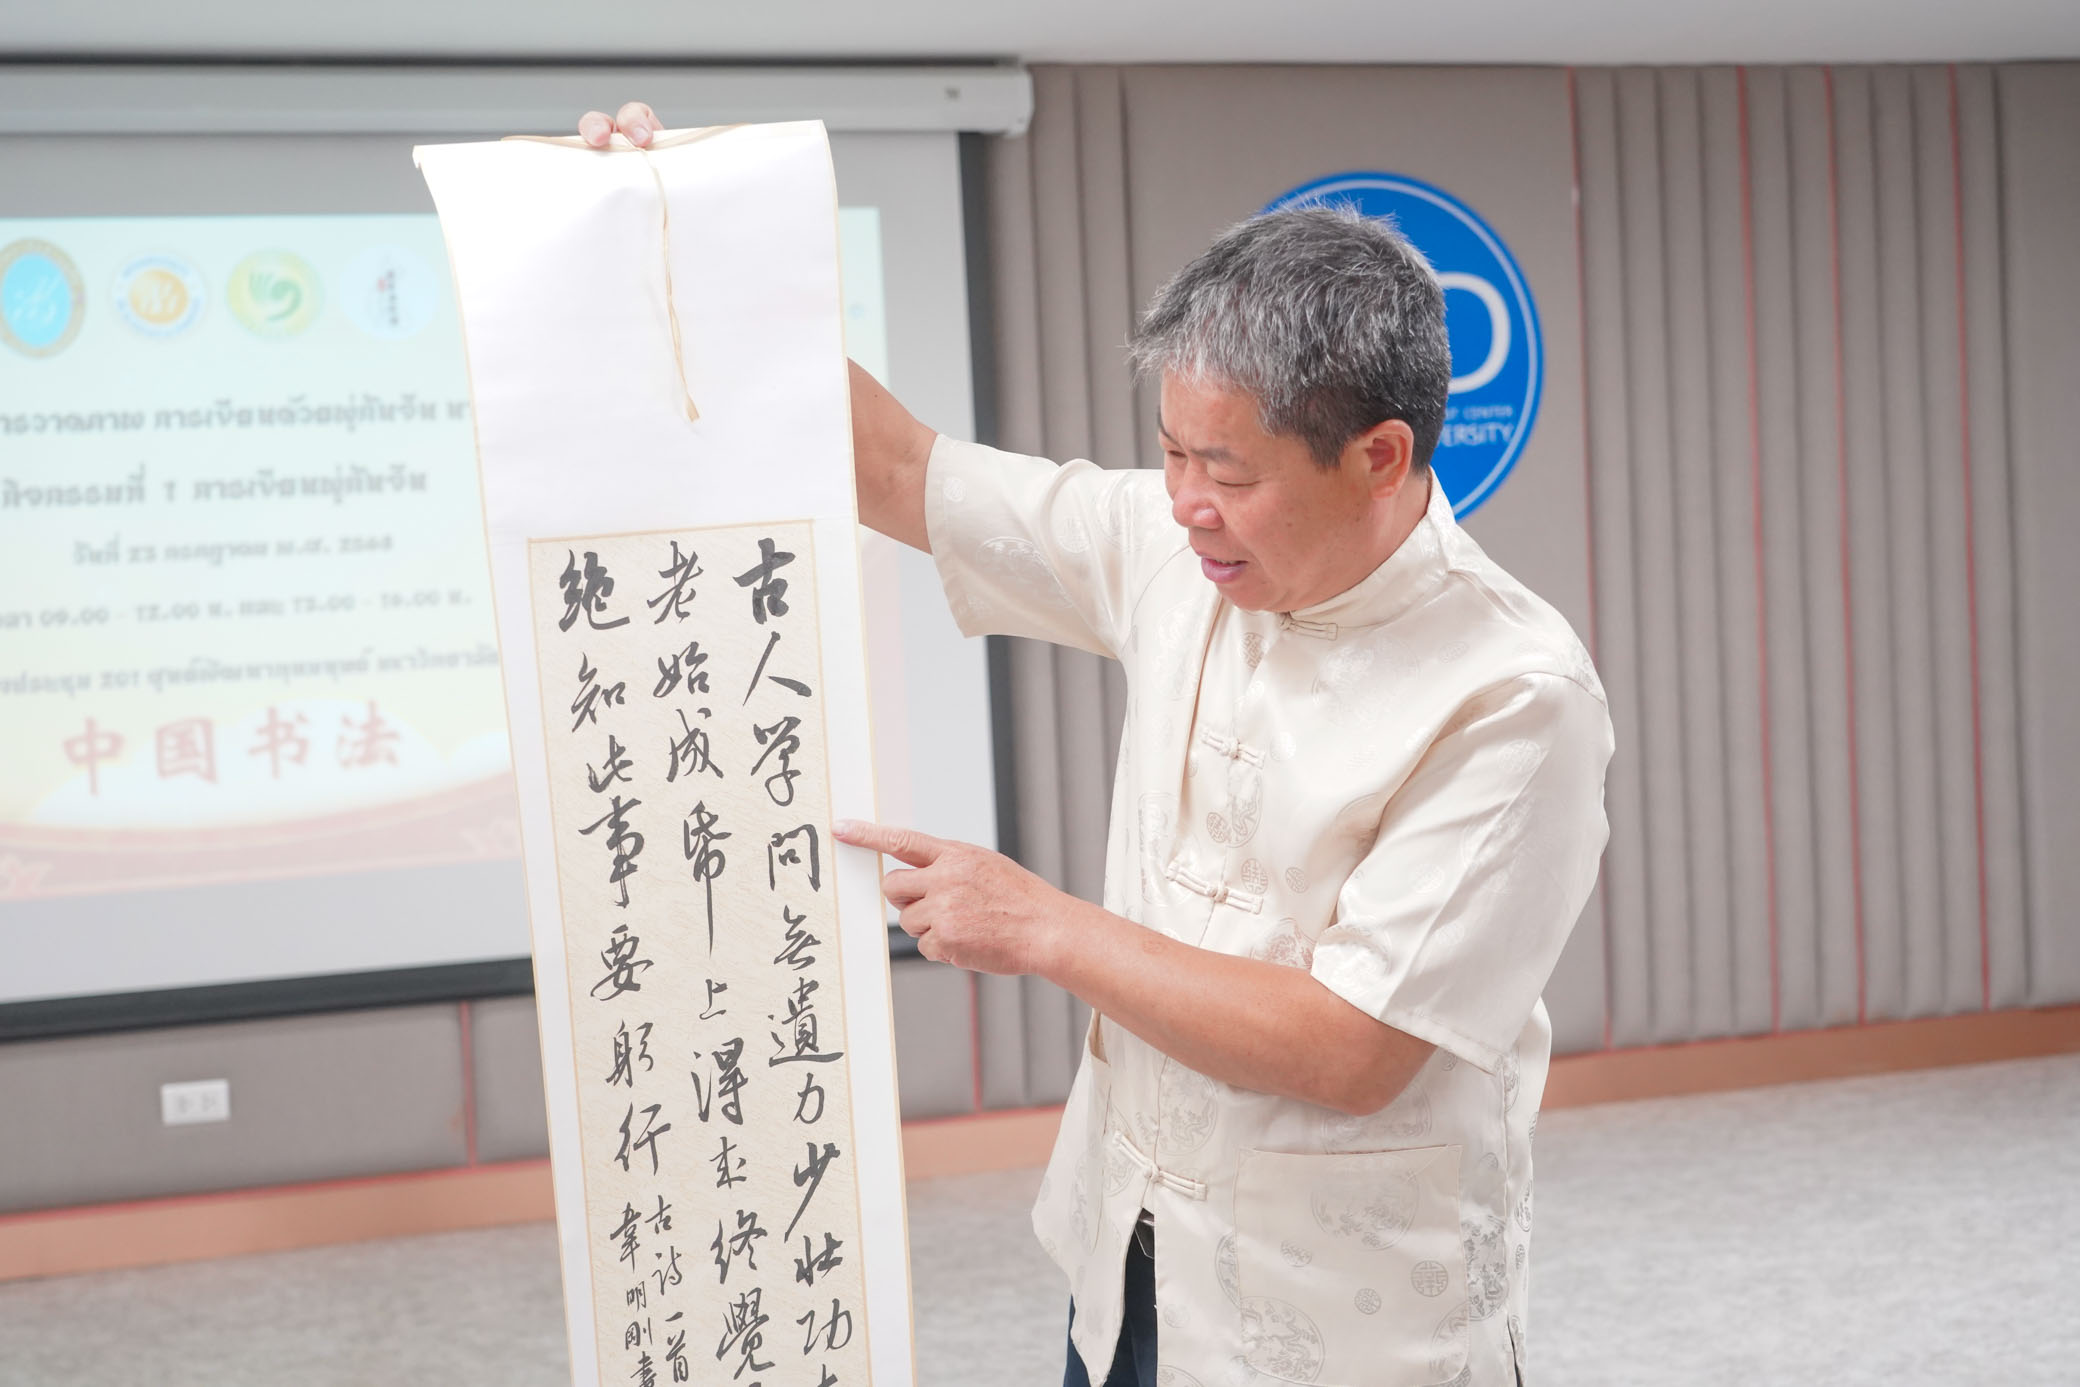 ารวาดภาพ การเขียนด้วยพู่กันจีน
กิจกรรมที่ 1 การเขียนพู่กันจีน
วันที่ 23 กรกฎาคม พ.ศ. 2568
09.00 - 12.00 น. และ 13.00 - 16.00 น.
ประชุม 201 ศูนย์พัฒนาทุนมนุษย์ มหาวิทยาลัย
中国书法
古人學問無遺力少壯功
老始成帋上得来終覺
絶知此事要躬行
古詩一首
韋明剛書
CENTER
ERSITY